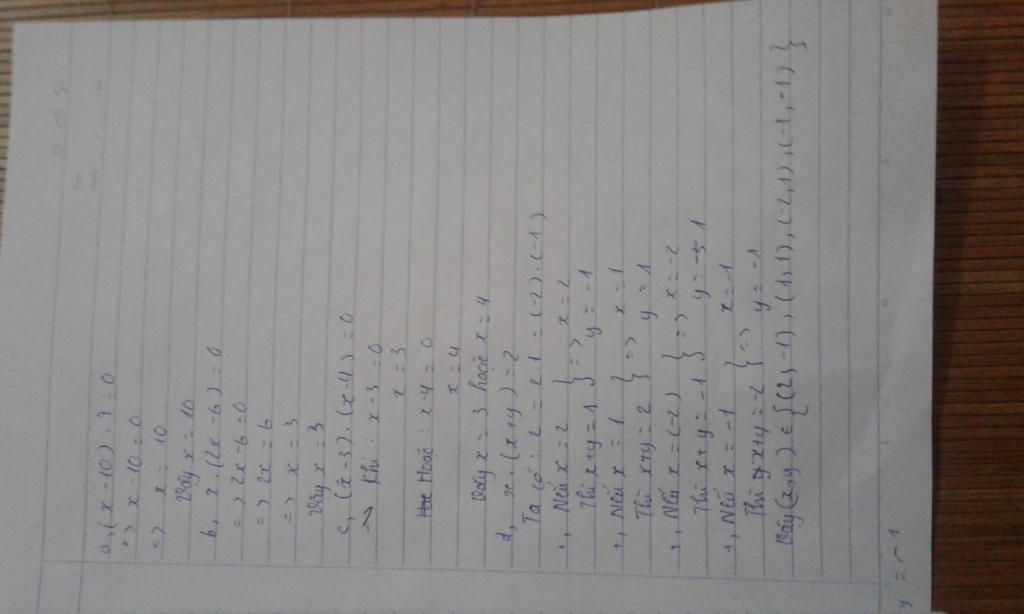 a, (x-10).7 = 0
=> x-10 = 0
=> x = 10
Vậy x = 10
b, x.(2x-6) = 0
=> 2x-6 = 0
=> 2x = 6
=> x = 3
Vậy x = 3
c, (x-3).(x-4) = 0
-> Khi : x-3 = 0
x = 3
Hoặc : x-4 = 0
x = 4
Vậy x = 3 hoặc x = 4
d, x.(x+y) = 2
Ta có : 2 = 2.1 = (-2).(-1)
+, Nếu x = 2 } => x = 2
Thì x+y = 1 } y = -1
+, Nếu x = 1 } x = 1
Thì x+y = 2 } => y = 1
+, Nếu x = (-2) } => x = -2
Thì x+y = -1 } y = 1
+, Nếu x = -1 } x = -1
Thì x+y = -2 } => y = -1
Vậy (x,y) ∈ {(2,-1),(1,1),(-2,1),(-1,-1)}